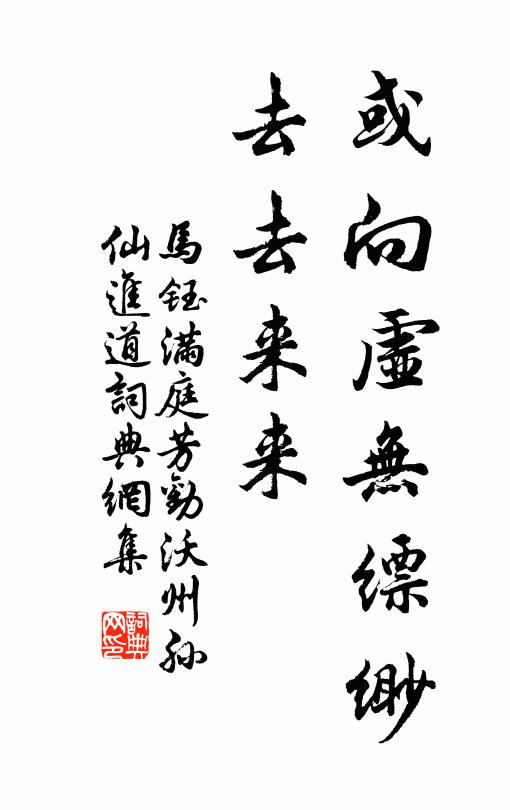 或向虛無縹緲
去去来来
馬鈺滿庭芳勸沃州孙
仙進道詞典網集
詞典
网印